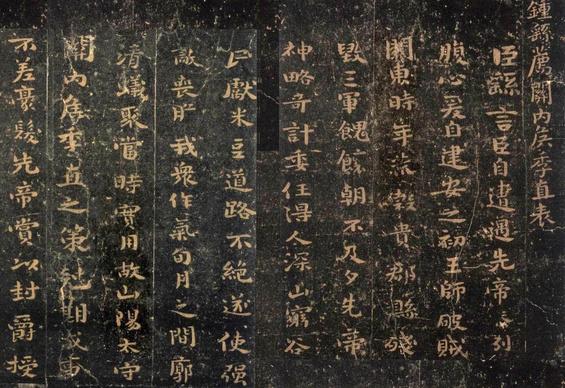 鍾繇薦關内侯季直表
臣繇言臣自遭遇先帝忝列
腹心爰自建安之初王師破賊
關東時年荒榖貴郡縣殘
毀三軍餽饟朝不及夕先帝
神略奇計委任得人深山窮谷
民獻米豆道路不絶遂使强
敵喪膽我衆作氣旬月之間廓
清蟻聚當時實用故山陽太守
關内侯季直之策尅期成事
不差豪髮先帝賞以封爵授